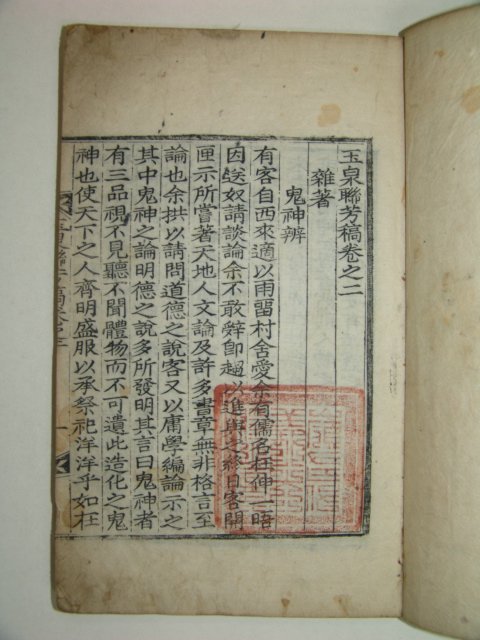 玉泉聯芳稿卷之二
雜著
鬼神辨
有客自西來適以雨畱村舍愛余有儒名枉伸一晤
因送奴請談論余不敢辭卽趨以進與之終日客開
匣示所嘗著天地人文論及許多書章無非格言至
論也余拱以請問道德之說客又以庸學編論示之
其中鬼神之論明德之說多所發明其言曰鬼神者
有三品視不見聽不聞體物而不可遺此造化之鬼
神也使天下之人齊明盛服以承祭祀洋洋乎如在